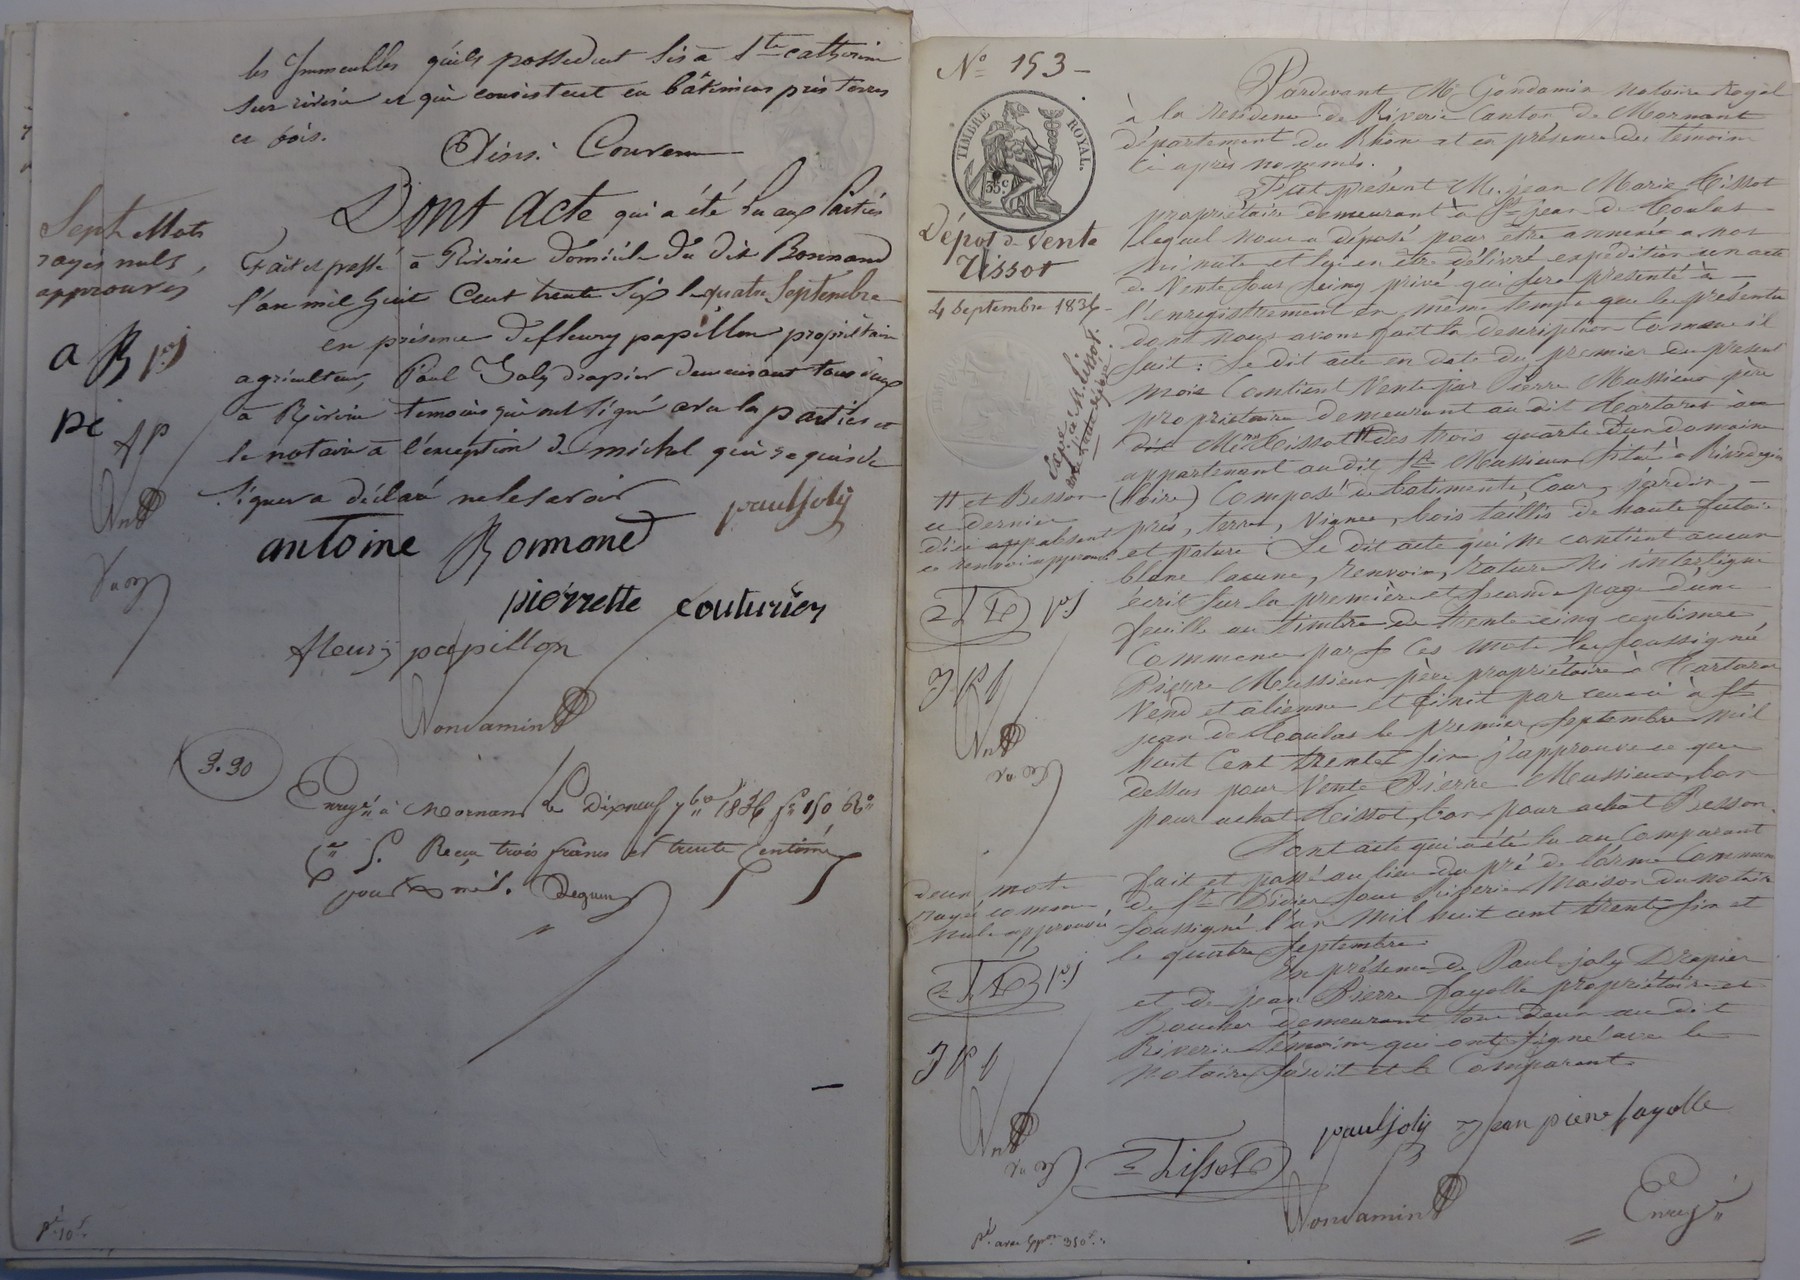 les Immeubles qu'ils possedent sis à Ste catherine
sur riverie et qui consistent en bâtimens prés terres
et bois.
Ainsi Convenu
Dont Acte qui a été lu aux Parties
Fait et passé à Riverie domicile du dit Bonnand
l'an mil huit Cent trente six le quatre Septembre
en présence de fleury papillon propriétaire
agriculteur, Paul Joly drapier demeurant tous deux
à Riverie temoins qui ont signé avec les parties et
le notaire à l'exception de michel qui de ce requis de
signer a déclaré ne le savoir
Sept Mots
rayés nuls
approuvés
a B pj
pc fp
pauljoly
antoine Bonnand
pierrette couturier
fleury papillon
Gondamin
3.30
Enregé à Mornant le Dixneuf 7bre 1836 f° 150 R°
Ce 5. Reçu trois francs et trente centimes
pour Dme
N° 153
TIMBRE ROYAL.
35c
Dépot de Vente
Tissot
4 Septembre 1836
Expé à M. Tissot
Pardevant Me Gondamin Notaire Royal
à la résidence de Riverie Canton de Mornant
département du Rhône et en présence des temoins
ci après nommés.
Fut présent M. jean Marie Tissot
propriétaire demeurant à St jean de Toulas
lequel nous a déposé pour être annexé a nos
minutes et lui en être délivré expédition un acte
de Vente sous seing privé qui sera presenté à
l'enregistrement en même temps que les présentes
dont nous avons fait la description Comme il
suit: Le dit acte en date du premier du présent
mois Contient Vente par Pierre Mussieux père
propriétaire demeurant au dit Tartaras au
dit Mr Tissot # des trois quarts d'un domaine
appartenant au dit Sr Mussieux situé à Rivedegier
(Loire) Composé de batiments, Cour, jardin,
prés, terres, Vignes, bois taillis de haute futaie
et pature. Le dit acte qui ne contient aucun
blanc lacune, renvoir, rature ni interligne
écrit sur la première et seconde page d'une
feuille au timbre de trente cinq centimes
Commence par Ces mots les soussigné
Pierre Mussieux père propriétaire à Tartaras
Vend et aliénne et finit par ceux ci à St
jean de Toulas le premier Septembre mil
huit Cent trente six j'approuve ce que
dessus pour Vente Pierre Mussieux bon
pour achat Tissot, bon pour achat Besson.
Dont acte qui a été lu au Comparant
fait et passé au lieu du pré de l'orme Commune
de St Didier sous Riverie Maison du notaire
soussigné l'an mil huit cent trente six et
le quatre Septembre
En présence de Paul joly Drapier
et de jean Pierre fayolle propriétaire et
Boucher demeurant tous deux au dit
Riverie témoins qui ont signé avec le
notaire susdit et le Comparant
# et Besson
ce dernier
d'ici absent
ce renvoi approuvé
T pj
J P f
deux mots
rayés comme
nuls approuvés
T pj
J P f
pauljoly Jean piere fayolle
Tissot
Gondamin
Enregé